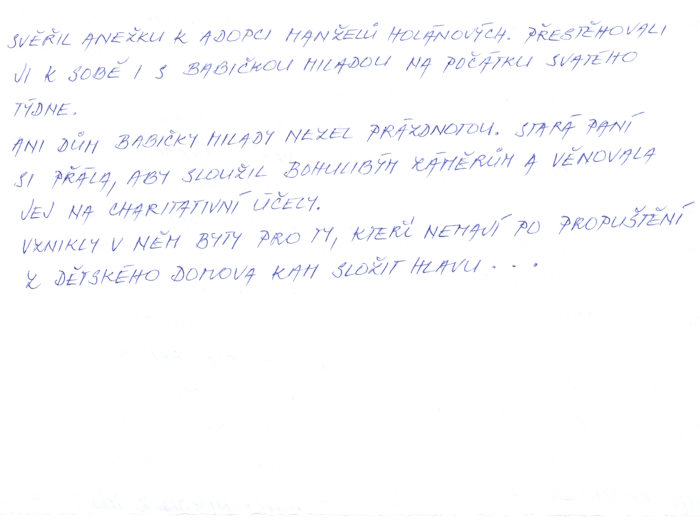 SVĚŘIL ANEŽKU K ADOPCI MANŽELŮ HOLÁNOVÝCH. PŘESTĚHOVALI
JI K SOBĚ I S BABIČKOU MILADOU NA POČÁTKU SVATÉHO
TÝDNE.
ANI DŮM BABIČKY MILADY NEZEL PRÁZDNOTOU. STARÁ PANÍ
SI PŘÁLA, ABY SLOUŽIL BOHULIBÝM ZÁMĚRŮM A VĚNOVALA
JEJ NA CHARITATIVNÍ ÚČELY.
VZNIKLY V NĚM BYTY PRO TY, KTEŘÍ NEMAJÍ PO PROPUŠTĚNÍ
Z DĚTSKÉHO DOMOVA KAM SLOŽIT HLAVU...